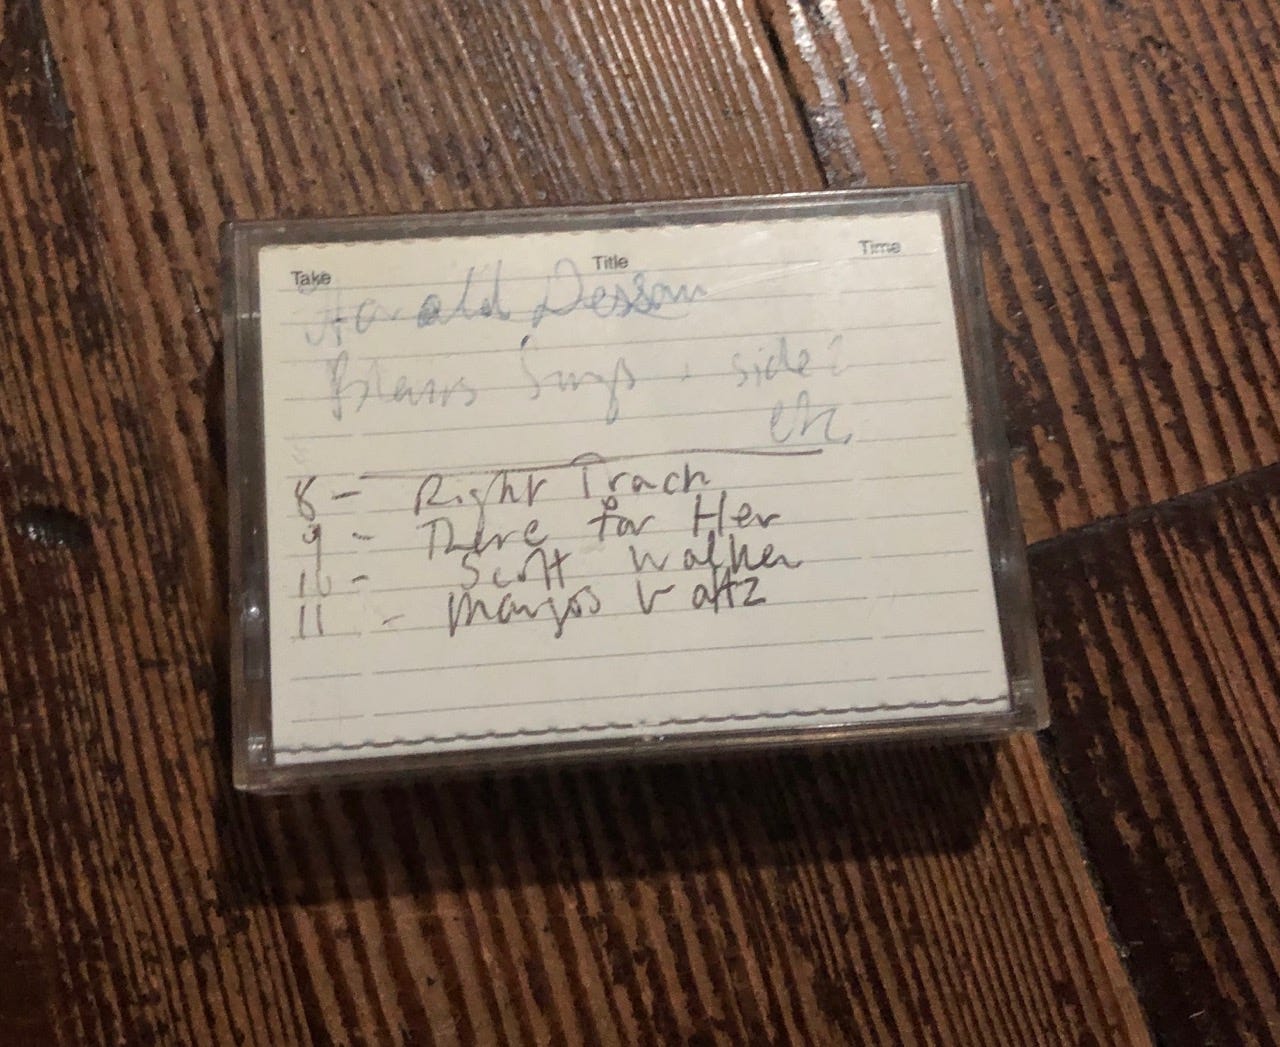 Take Title Time
Harold Dessau
side 2
etc.
8 - Right Track
9 - There for Her
10 - Scott Walker
11 - Margos Waltz